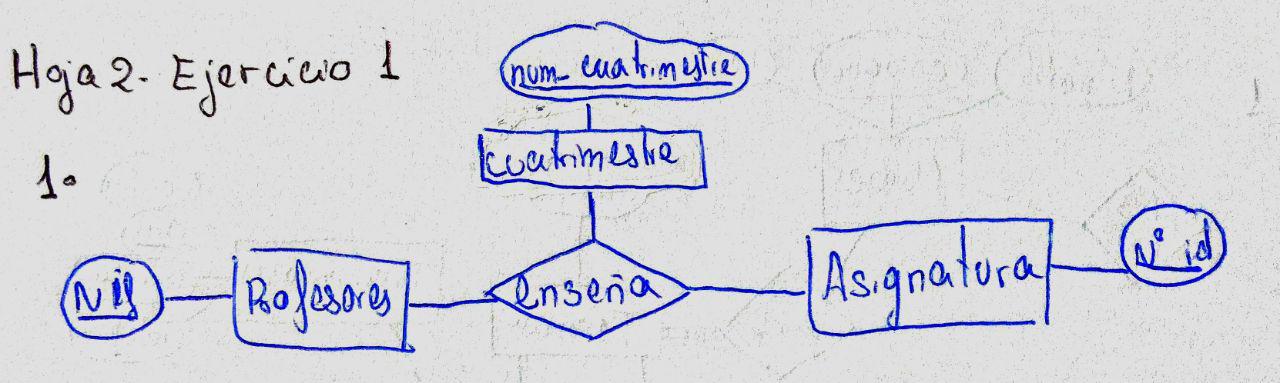 Hoja 2. Ejercicio 1
num_cuatrimestre
cuatrimestre
1.
Nif
Profesores
enseña
Asignatura
Nº id